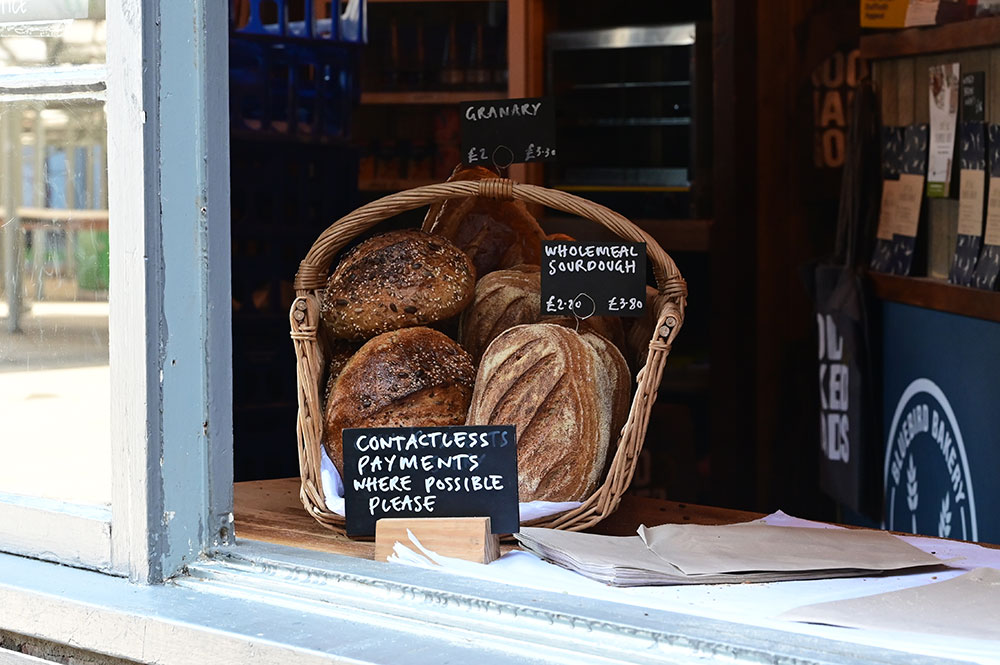 GRANARY
£2 £3.30
WHOLEMEAL
SOURDOUGH
£2.20 £3.80
CONTACTLESS
PAYMENTS
WHERE POSSIBLE
PLEASE
BLUEBIRD BAKERY